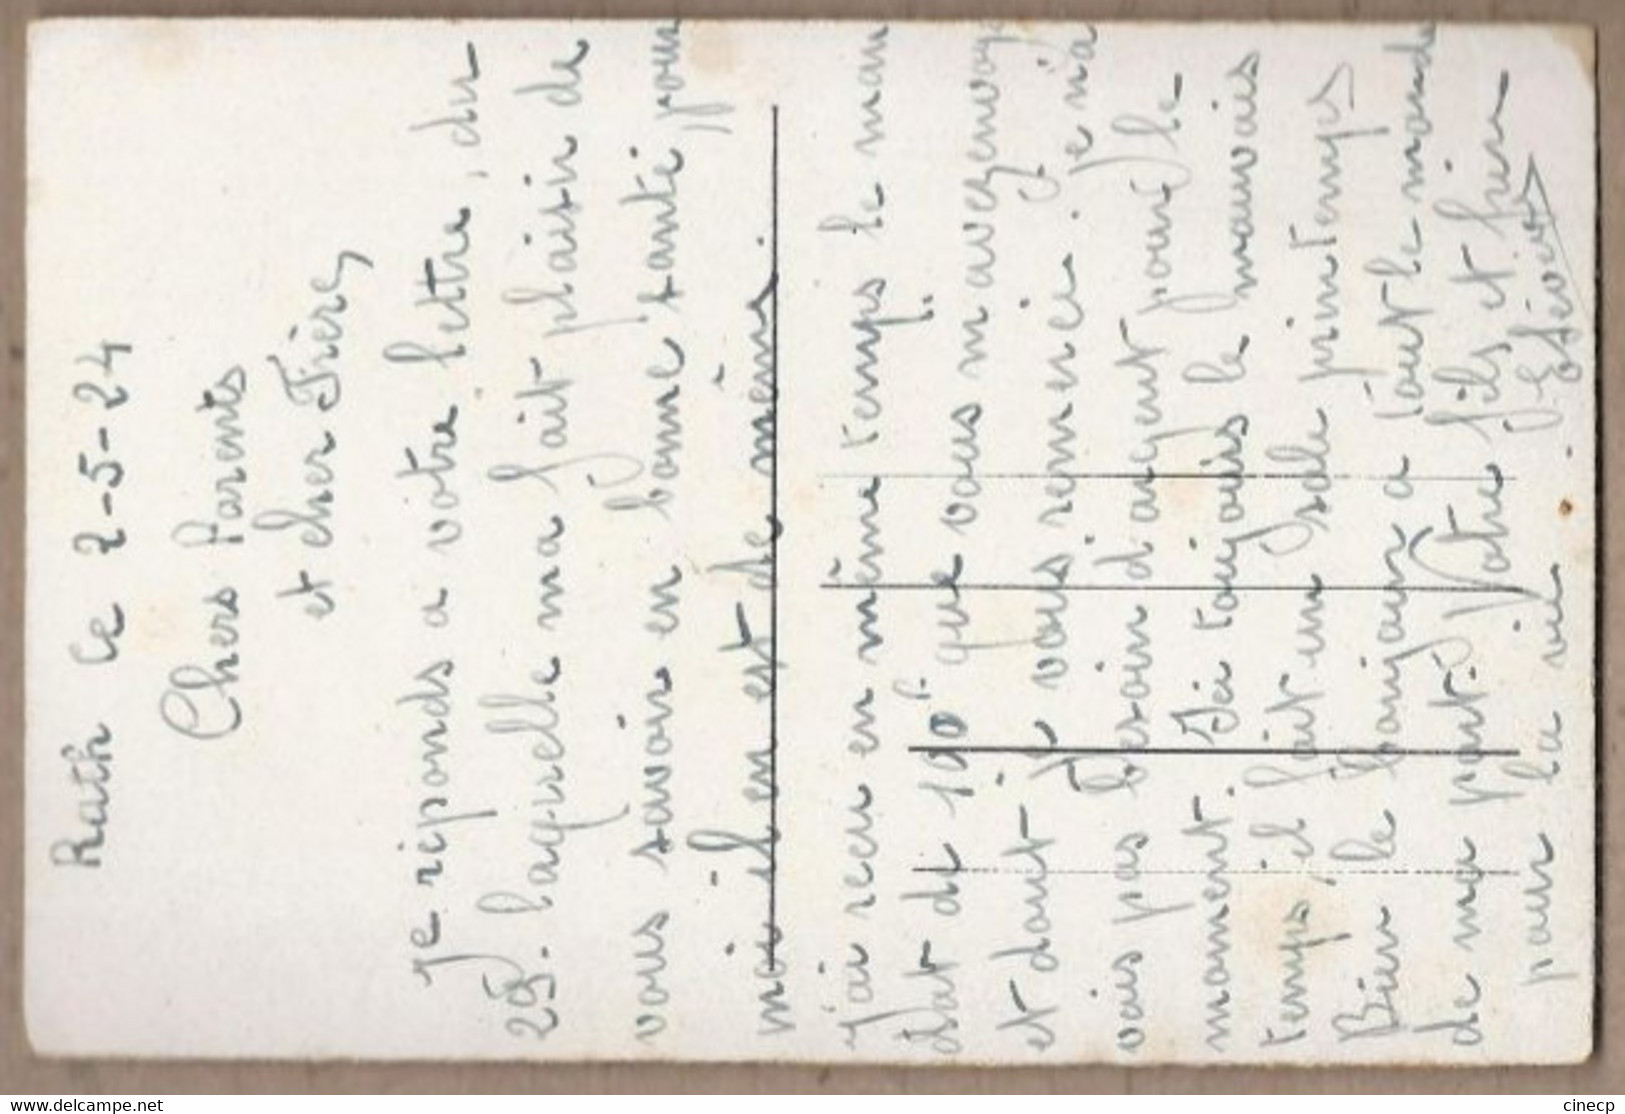 Rath Ce 2-5-24
Chers Parents
et cher Frère,
je réponds a votre lettre, du
29. laquelle ma fait plaisir de
vous savoir en bonne santé, pour
moi il en est de même.
j'ai reçu en même temps le man
dat de 100f que vous m'avez envoyé
et dont je vous remercie. je n'a
vais pas besoin d'argent pour le
moment. Ici toujours le mauvais
temps, il fait un sale printemps
Bien le bonjour a tout le monde
de ma part. Votre fils et frère
pour la vie. Estève
www.delcampe.net
cinecp